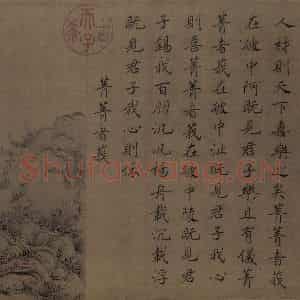 人材則天下喜樂之矣菁菁者莪
在彼中阿既見君子樂且有儀菁
菁者莪在彼中沚既見君子我心
則喜菁菁者莪在彼中陵既見君
子錫我百朋汎汎楊舟載沉載浮
既見君子我心則休
菁菁者莪
古希天子
Shufawang.CN